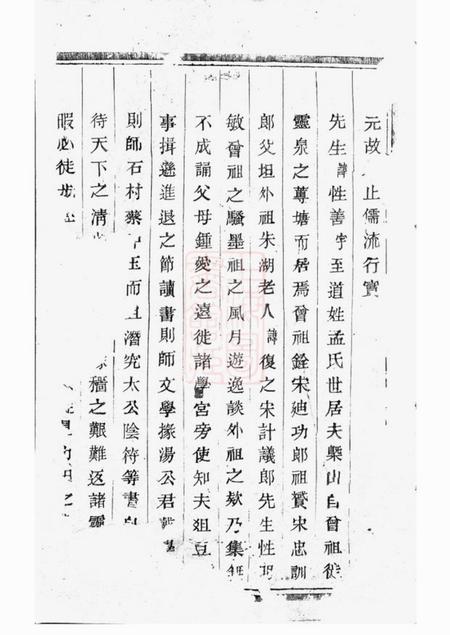 元故 止儒流行實
先生諱性善字至道姓孟氏世居夫槩山自曾祖徙
靈泉之蓴塘而居焉曾祖銓宋廸功郎祖贇宋忠訓
郎父垣外祖朱湖老人諱復之宋計議郎先生性
敏曾祖之騷墨祖之風月遊逸談外祖之欸乃集
不成誦父母鍾愛之遠徙諸學宮旁使知夫俎豆
事揖遜進退之節讀書則師文學掾湯公君
則師石村蔡 玉而且潛究太公陰符等書
待天下之清 穡之艱難返諸靈
暇必徒步